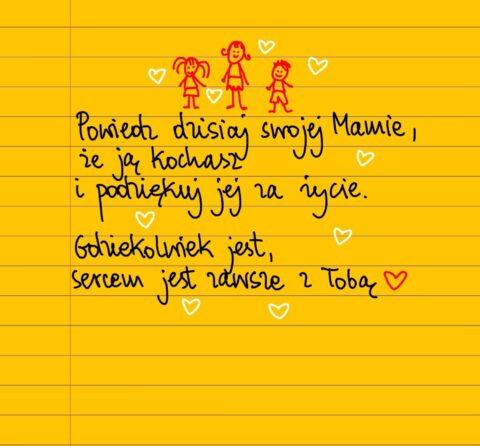 Powiedz dzisiaj swojej Mamie,
że ją kochasz
i podziękuj jej za życie.
Gdziekolwiek jest,
sercem jest zawsze z Tobą